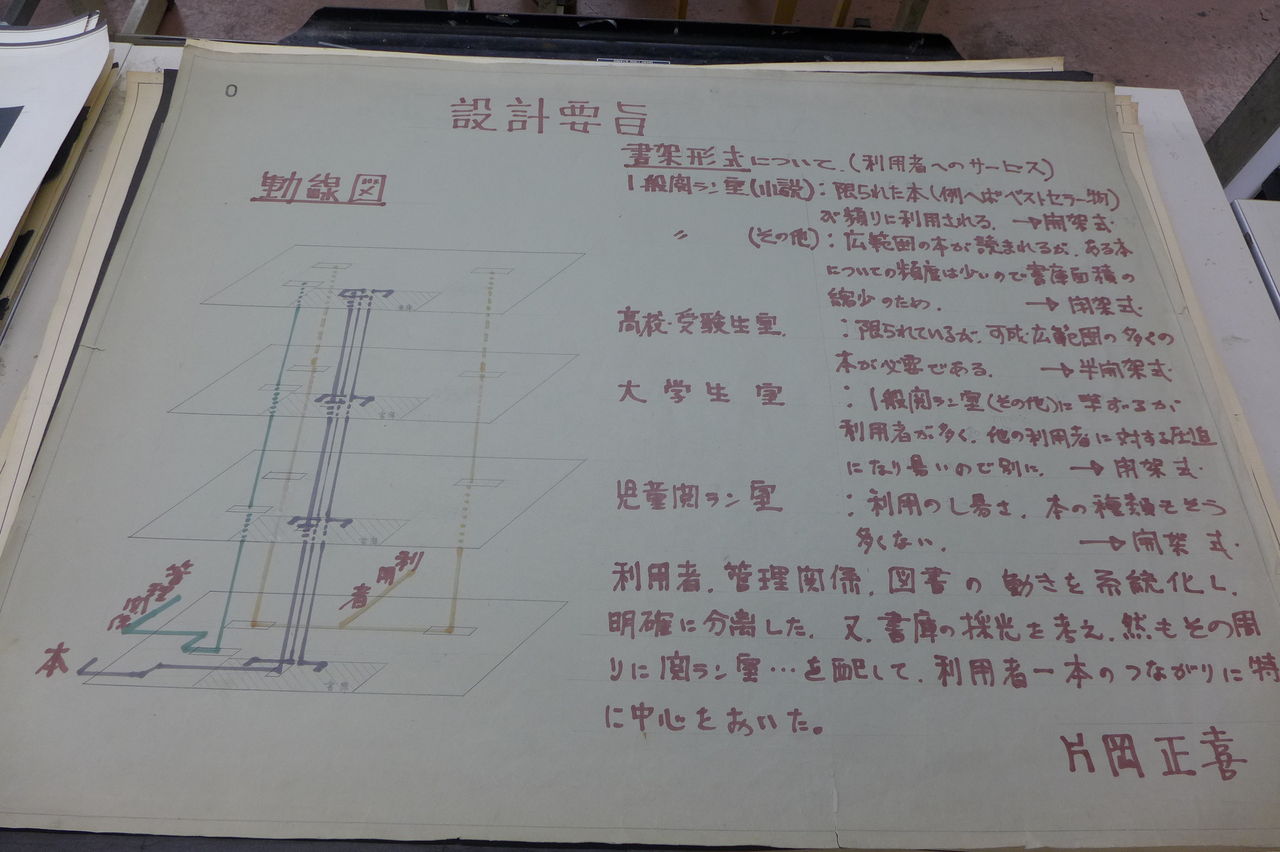 0
設計要旨
動線図
書架形式について.(利用者へのサービス)
1般閲ラン室(小説):限られた本(例へばベストセラー物)
が頻りに利用される. →開架式.
〃 (その他):広範囲の本が読まれるが、ある本
についての頻度は少いので書庫面積の
縮少のため. →閉架式.
高校・受験生室. :限られているが、可成広範囲の多くの
本が必要である. →半開架式.
大学生室 :1般閲ラン室(その他)に準ずるが
利用者が多く、他の利用者に対する圧迫
になり易いので別に. →開架式.
児童閲ラン室 :利用のし易さ、本の種類もそう
多くない. →開架式.
利用者、管理関係、図書の動きを系統化し、
明確に分離した. 又、書庫の採光を考え、然もその周
りに閲ラン室…を配して、利用者―本のつながりに特
に中心をおいた。
片岡正喜
書庫
書庫
書庫
管理関係
利用者
本
書庫